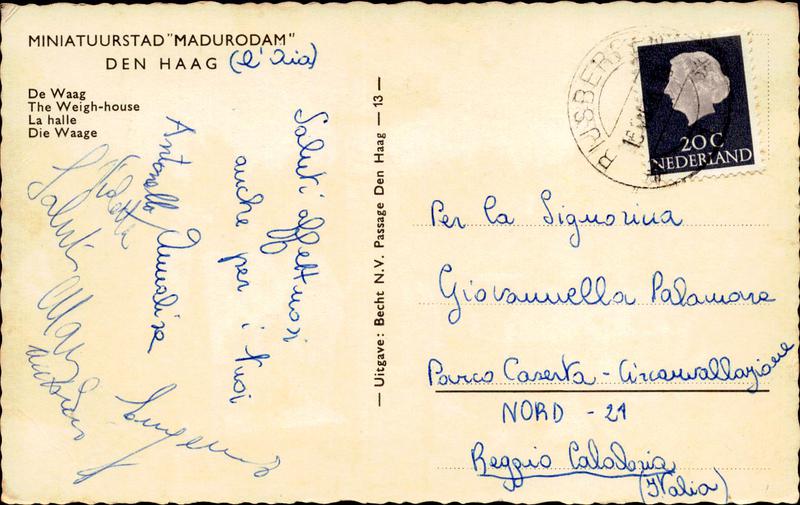 MINIATUURSTAD "MADURODAM"
DEN HAAG (l'Aia)
De Waag
The Weigh-house
La halle
Die Waage
Saluti affettuosi
anche per i tuoi
Antonello Annalisa
Violetta
Saluti
— Uitgave: Becht N.V. Passage Den Haag — 13 —
RIJSBERGEN
20 C
NEDERLAND
Per la Signorina
Giovannella Palamara
Parco Caserta - Circonvallazione
NORD - 21
Reggio Calabria
(Italia)